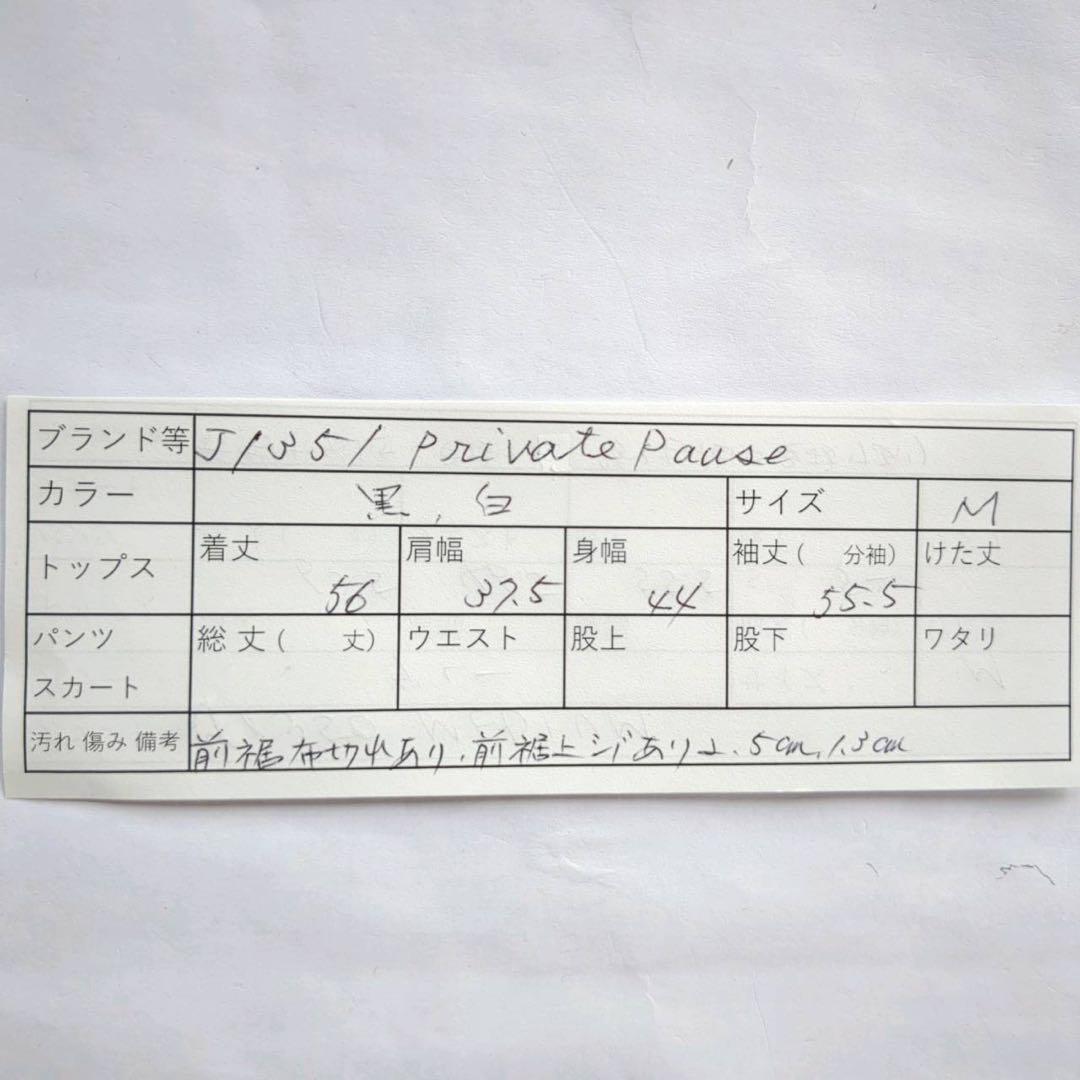 ブランド等 J1351 Private Pause
カラー 黒、白 サイズ M
トップス 着丈 56 肩幅 37.5 身幅 44 袖丈( 分袖) 55.5 けた丈
パンツ スカート 総丈( 丈) ウエスト 股上 股下 ワタリ
汚れ 傷み 備考 前裾布切れあり、前裾上シミあり 5cm, 1.3cm